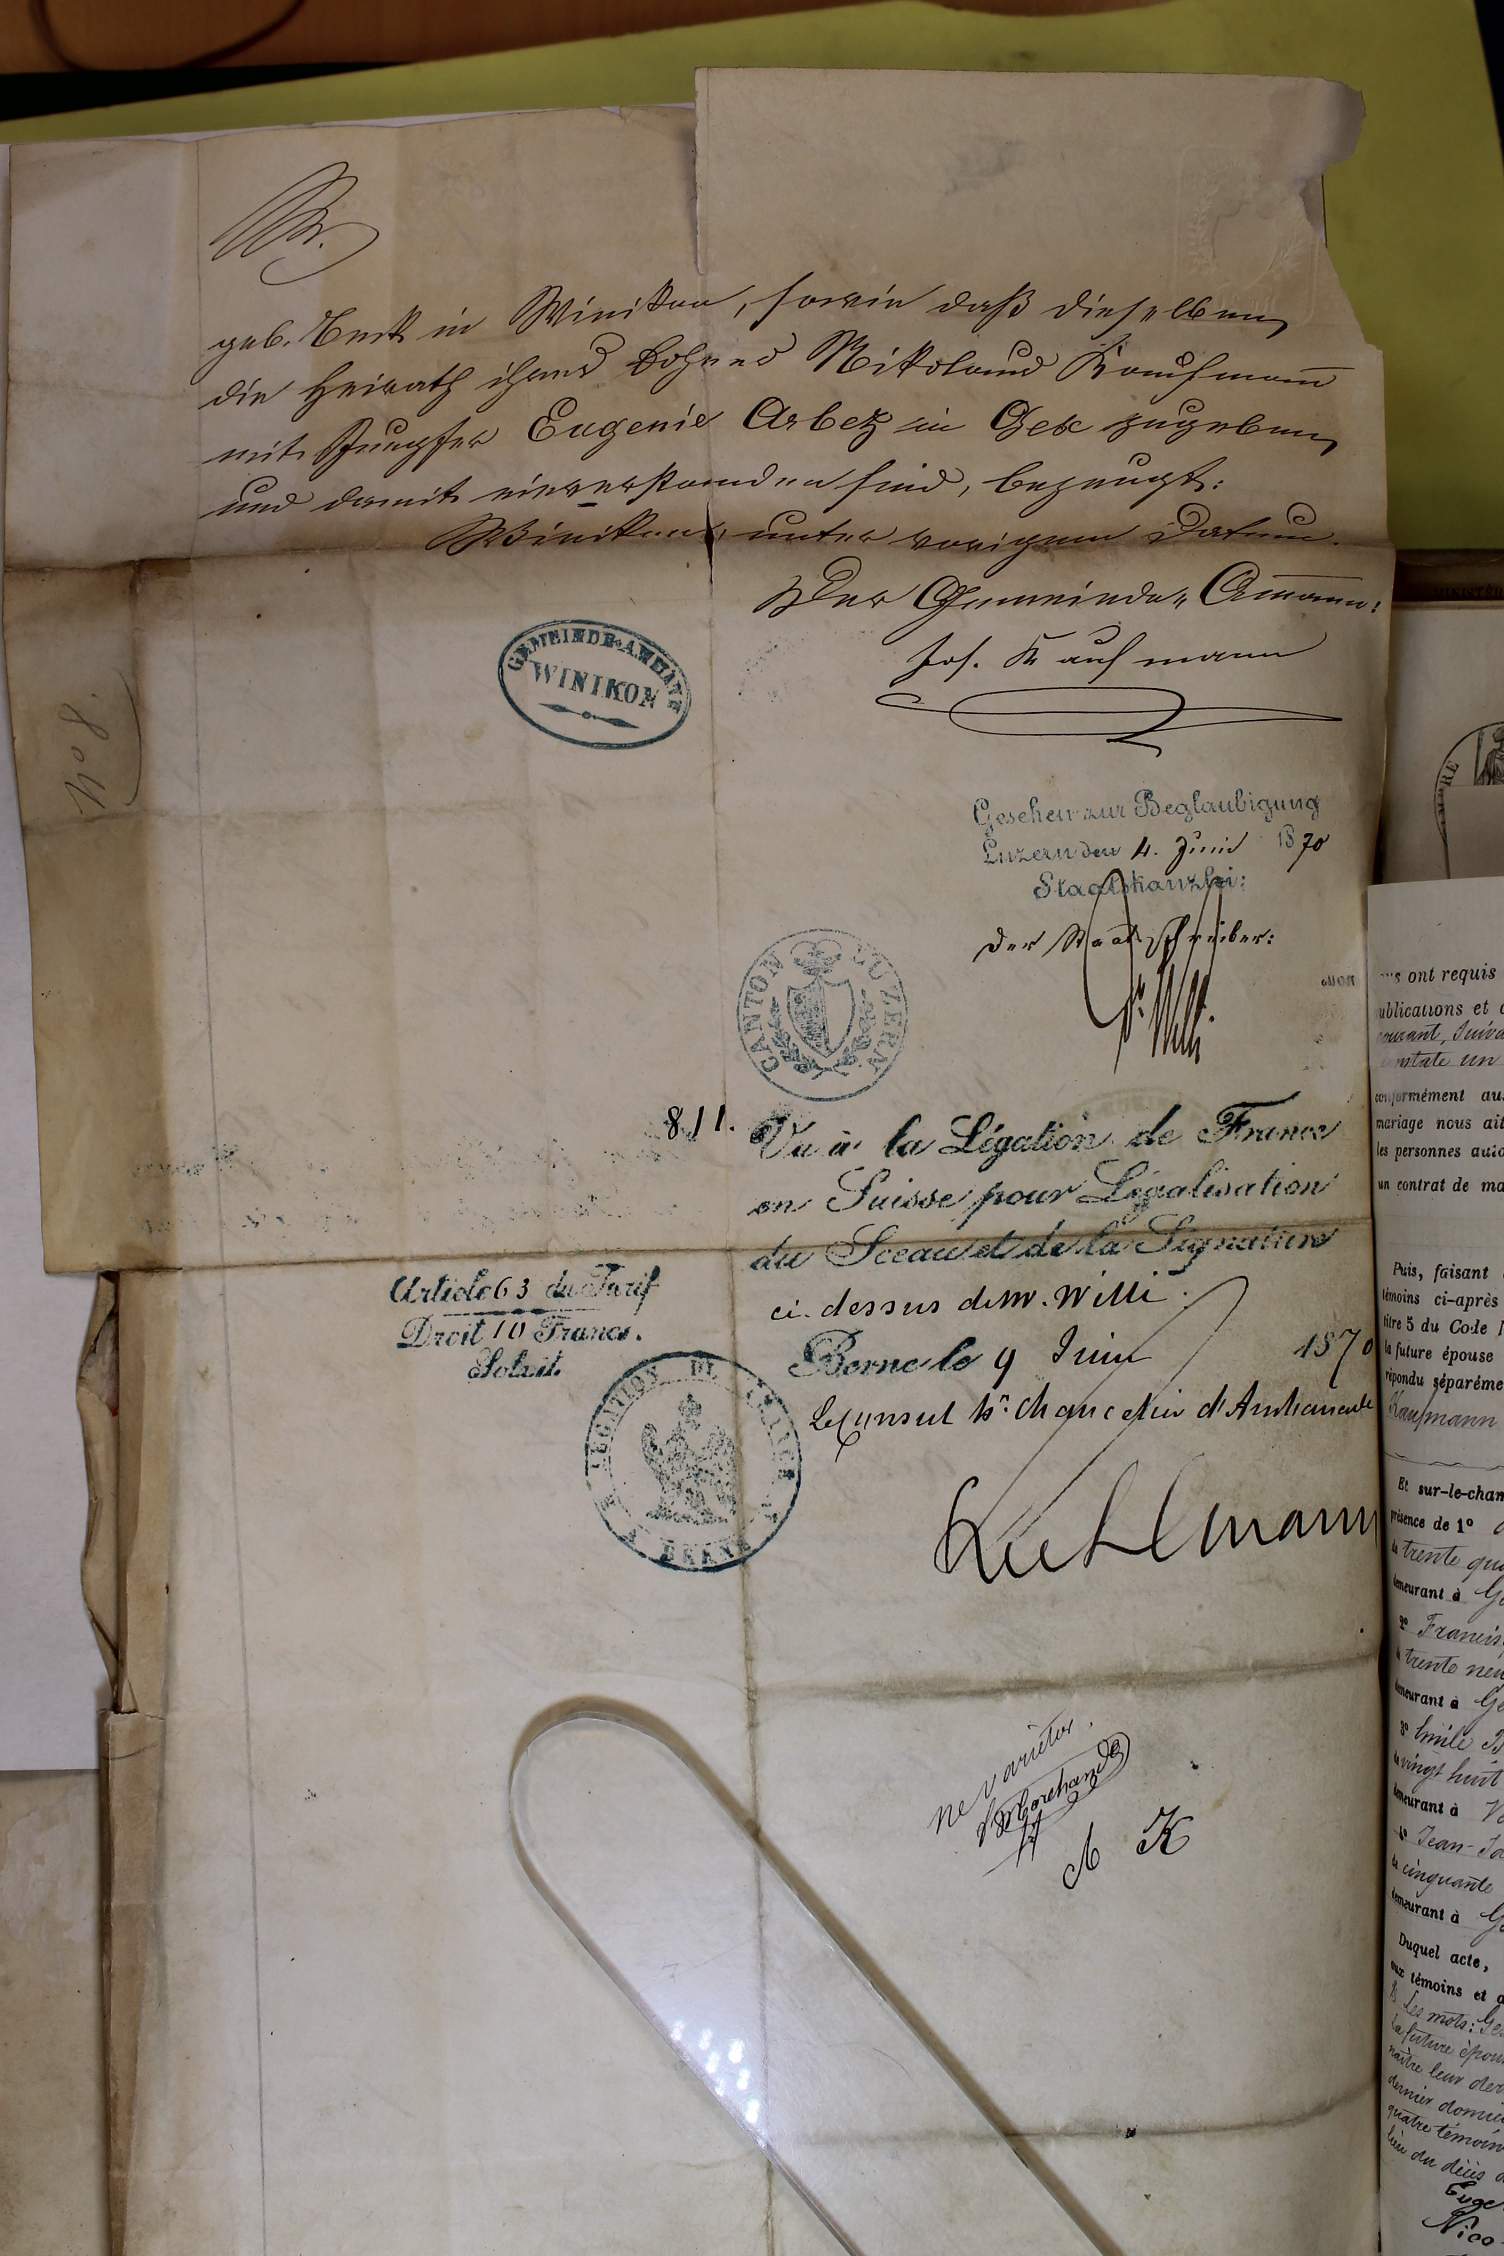 geb. Beck in Winikon, sowie daß dieselben
die Heirath ihres Sohnes Nikolaus Kaufmann
mit Jungfer Eugenie Arbez in Gex zugeben
und damit einverstanden sind, bezeugt:
Winikon, unter vorigem Datum.
Der Gemeinde-Ammann:
Jos. Kaufmann
GEMEINDE-AMMANN
WINIKON
No 8.
Gesehen zur Beglaubigung
Luzern den 4. Juni 1870
Staatskanzlei:
Der Staatsschreiber:
Dr. Willi
CANTON LUZERN
811.
Vu à la Légation de France
en Suisse pour Légalisation
du Sceau et de la Signature
ci-dessus de M. Willi.
Article 63 du Tarif
Droit 10 Francs.
Berne le 9 Juin 1870
Le Consul hre. Chancelier d'Ambassade
LÉGATION DE FRANCE
A BERNE
ne varietur.
Marchand
A K
ont requis
publications et
courant, Suiva
constate un
conformément au
mariage nous ait
les personnes auto
un contrat de ma
Puis, faisant
témoins ci-après
titre 5 du Code
la future épouse
répondu séparéme
Kaufmann
Et sur-le-cham
présence de 1°
de trente qua
demeurant à Ge
2° Francis
trente neu
demeurant à Ge
3° Emile B
vingt huit
demeurant à
4° Jean-Ja
de cinquante
demeurant à Ge
Duquel acte,
aux témoins et
Les mots: Ge
la future épou
naître leur der
dernier domici
quatre témoin
lieu du décès
Euge
Nico